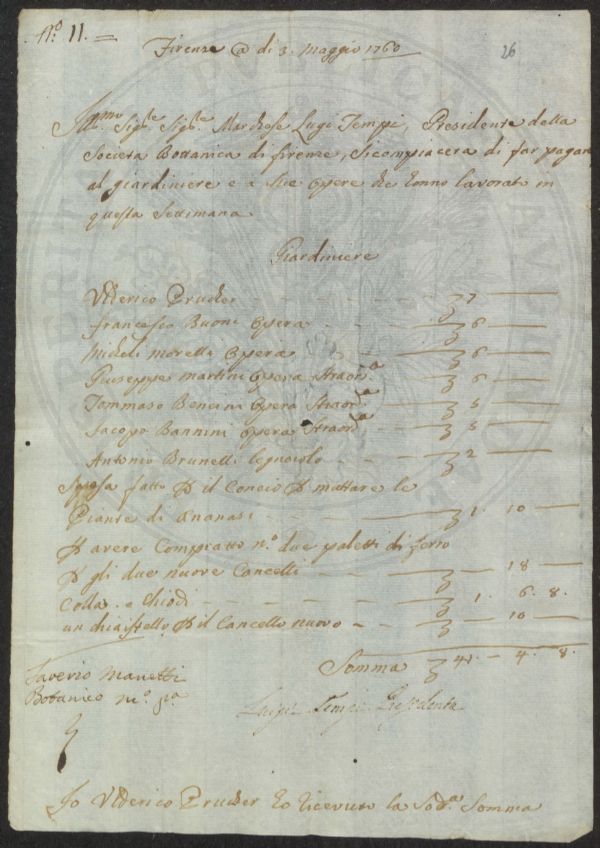 N.º 11. =
26
Firenze @ di 3. Maggio 1760
Ill.mo Sig.re Sig.re Marchese Luigi Tempi, Presidente della
Società Bottanica di firenze, si compiacerà di far pagare
al giardiniere e a Sue Opere che Ànno lavorato in
questa Settimana
Giardiniere
Vlderico Prucker - - - - 7 -
francesco Buoni Opera - - 6 -
Micheli Morelli Opera - - 6 -
Giuseppe Martini Opera Straor.ia 6 -
Tommaso Bencini Opera Straor.ia 5 -
Jacopo Bannini Opera Straor.ia 5 -
Antonio Brunelli legnaiolo - - 2 -
Spesa fatto p il Concio p mattare le
Piante di Ananasi - 1. 10 -
p avere Comprato n.º due paletti di ferro
p gli due nuove Cancelli - - 18 -
Colla. e Chiodi - - 1. 6. 8.
un chiavistello p il Cancello nuovo - - 10 -
Somma 41. - 4. 8.
Saverio Manetti
Botanico m.º p.a
Luigi Tempi Presidente
Io Vlderico Prucker ho ricevuto la Sod.a Somma